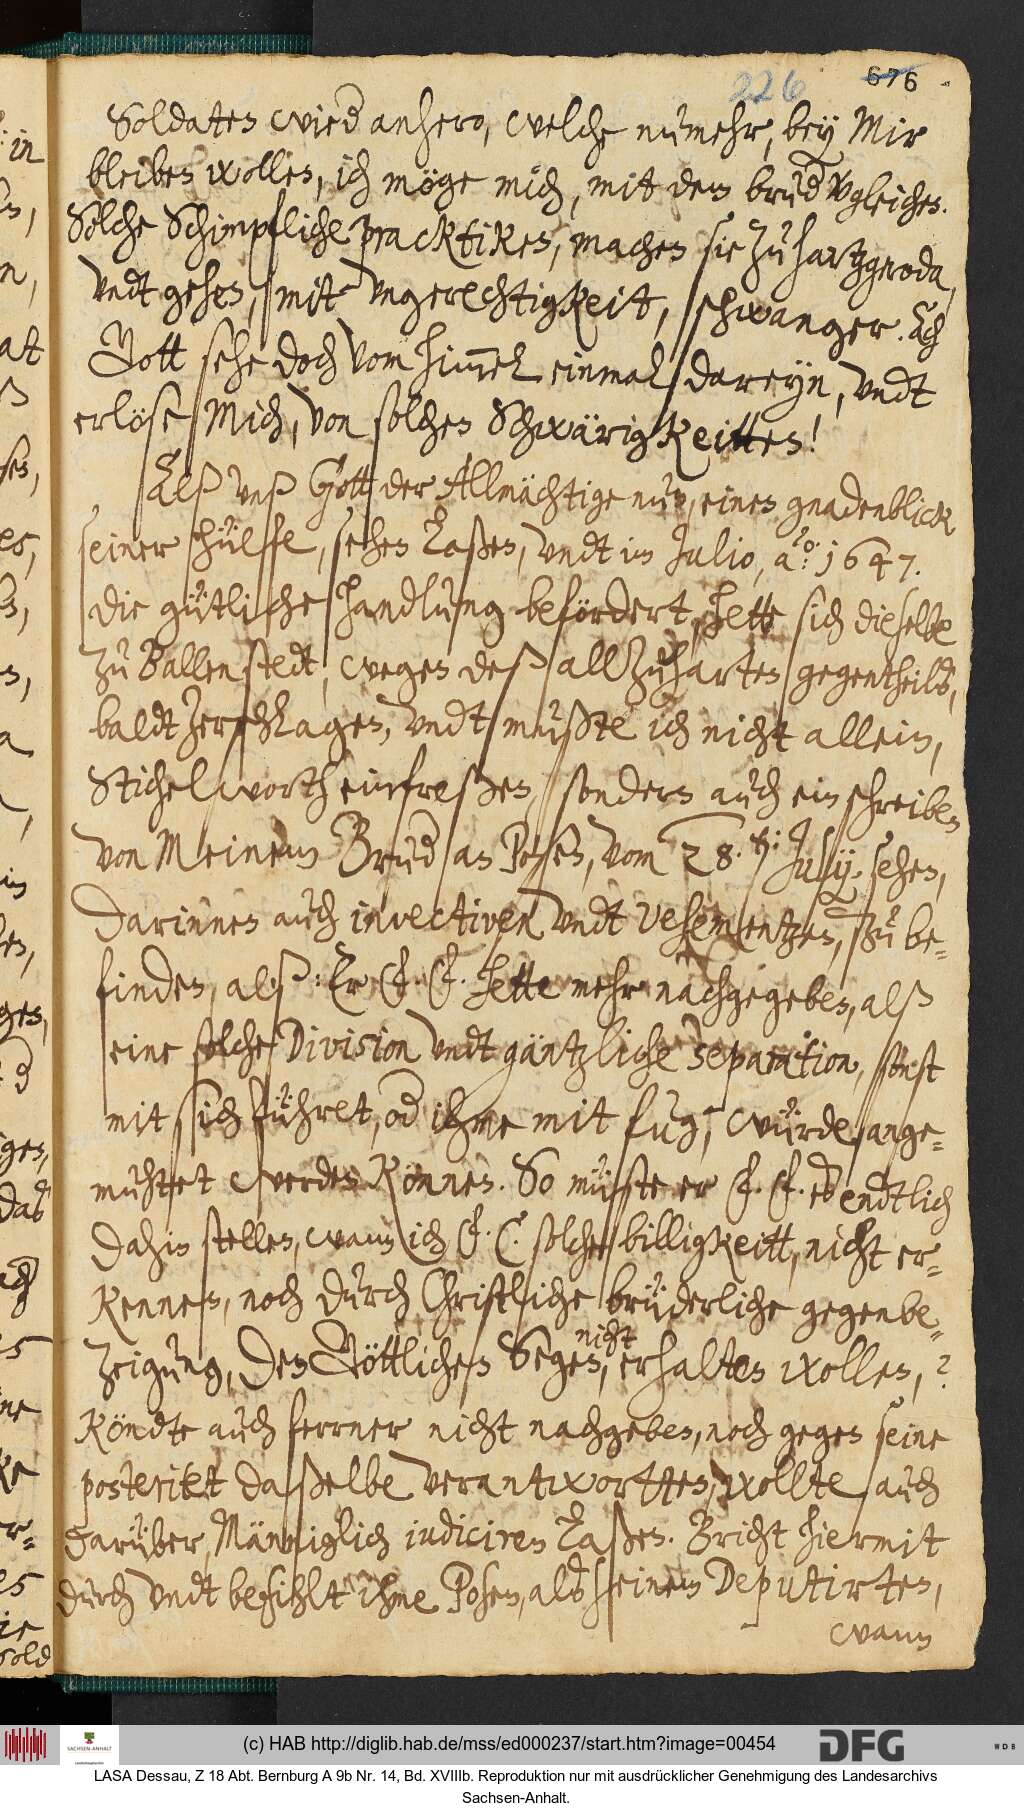 226 676
Soldaten wied anhero, welche numehr, bey Mir
bleiben wollen, ich möge mich, mit dem brud vgleichen.
Solche Schimpfliche practiken, machen sie zu hartzgeroda,
undt gehen, mit ungerechtigkeit, schwanger. Ach
Gott sehe doch vom himel einmal dareyn, undt
erlöse Mich, von solchen Schwärigkeitten!
Alß unß Gott der Allmächtige nun, einen gnadenblick
seiner hülffe, sehen laßen, undt im Julio, ao: 1647.
die gütliche handlung befördert, hette sich dieselbe
zu Ballenstedt, wegen deß allzuharten gegentheilß,
baldt zerschlagen, undt mußte ich nicht allein,
Stichelworth einfreßen, sondern auch ein schreiben
von Meinem Brud an Posen, vom 28. ti: July. sehen,
darinnen auch invectiven undt vehementzen, zu be-
finden, alß: Er F. F. hette mehr nachgegeben, alß
eine solche Division undt gäntzliche separation, sonst
mit sich führet, od ihme mit fug, würde ange-
muhtet werden können. So müste er F. F. es endtlich
dahin stellen, wann ich F. F. solche billigkeitt, nicht er-
kennen, noch durch Christliche brüderliche gegenbe-
zeigung, den Göttlichen Segen, nicht erhalten wollen, ?
Köndte auch ferrner nicht nachgeben, noch gegen seine
posteritet daßelbe verantwortten, wollte auch
darüber, Männiglich iudiciren laßen. Bricht hiermit
durch undt befihlt ihme Posen, als seinem Deputirten,
wann
(c) HAB http://diglib.hab.de/mss/ed000237/start.htm?image=00454
SACHSEN-ANHALT
DFG
WDB
LASA Dessau, Z 18 Abt. Bernburg A 9b Nr. 14, Bd. XVIIIb. Reproduktion nur mit ausdrücklicher Genehmigung des Landesarchivs
Sachsen-Anhalt.